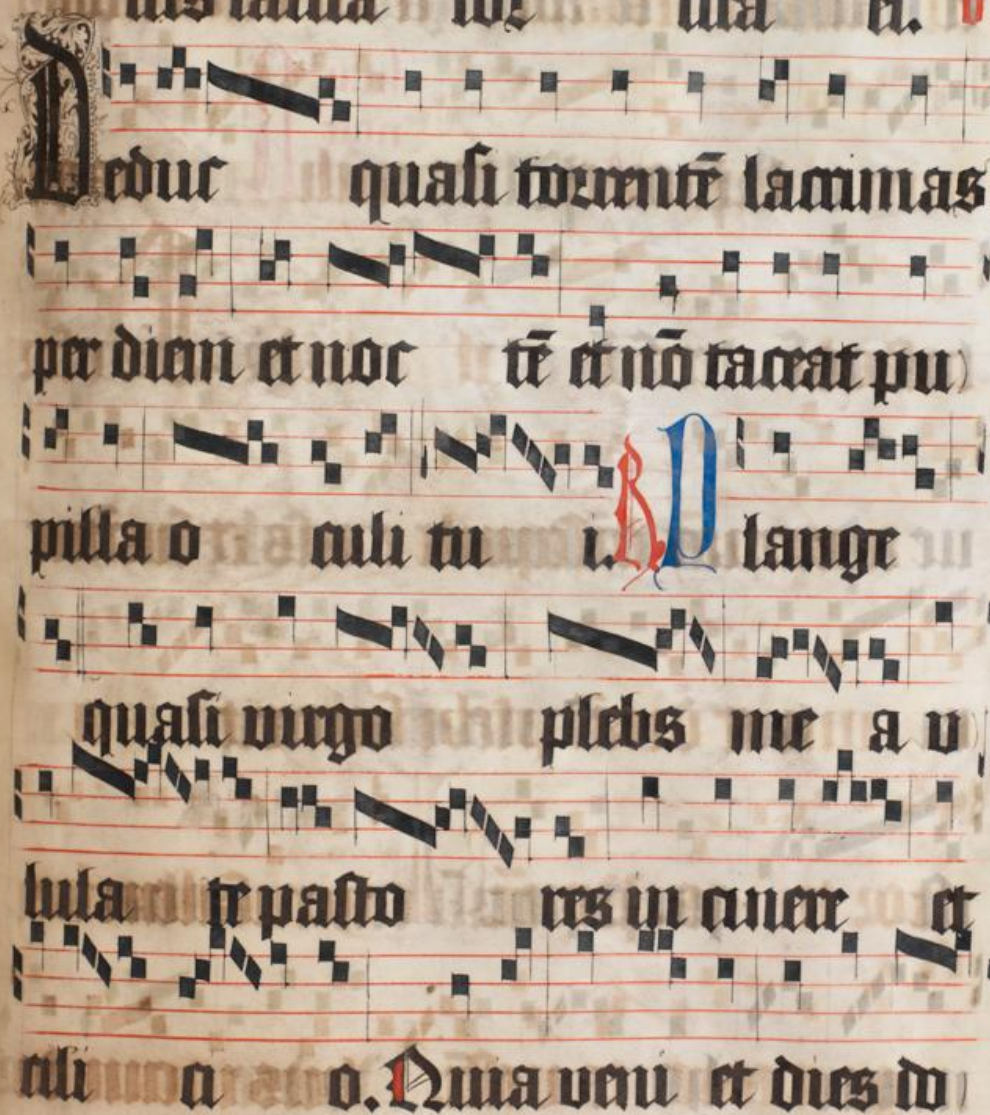 Deduc quasi torrentē lacrimas
per diem et noc tē et nō taceat pu
pilla o culi tu i. R Plange
quasi virgo plebs me a u
lula te pasto res in cinere et
cili ci o. Quia veni et dies do